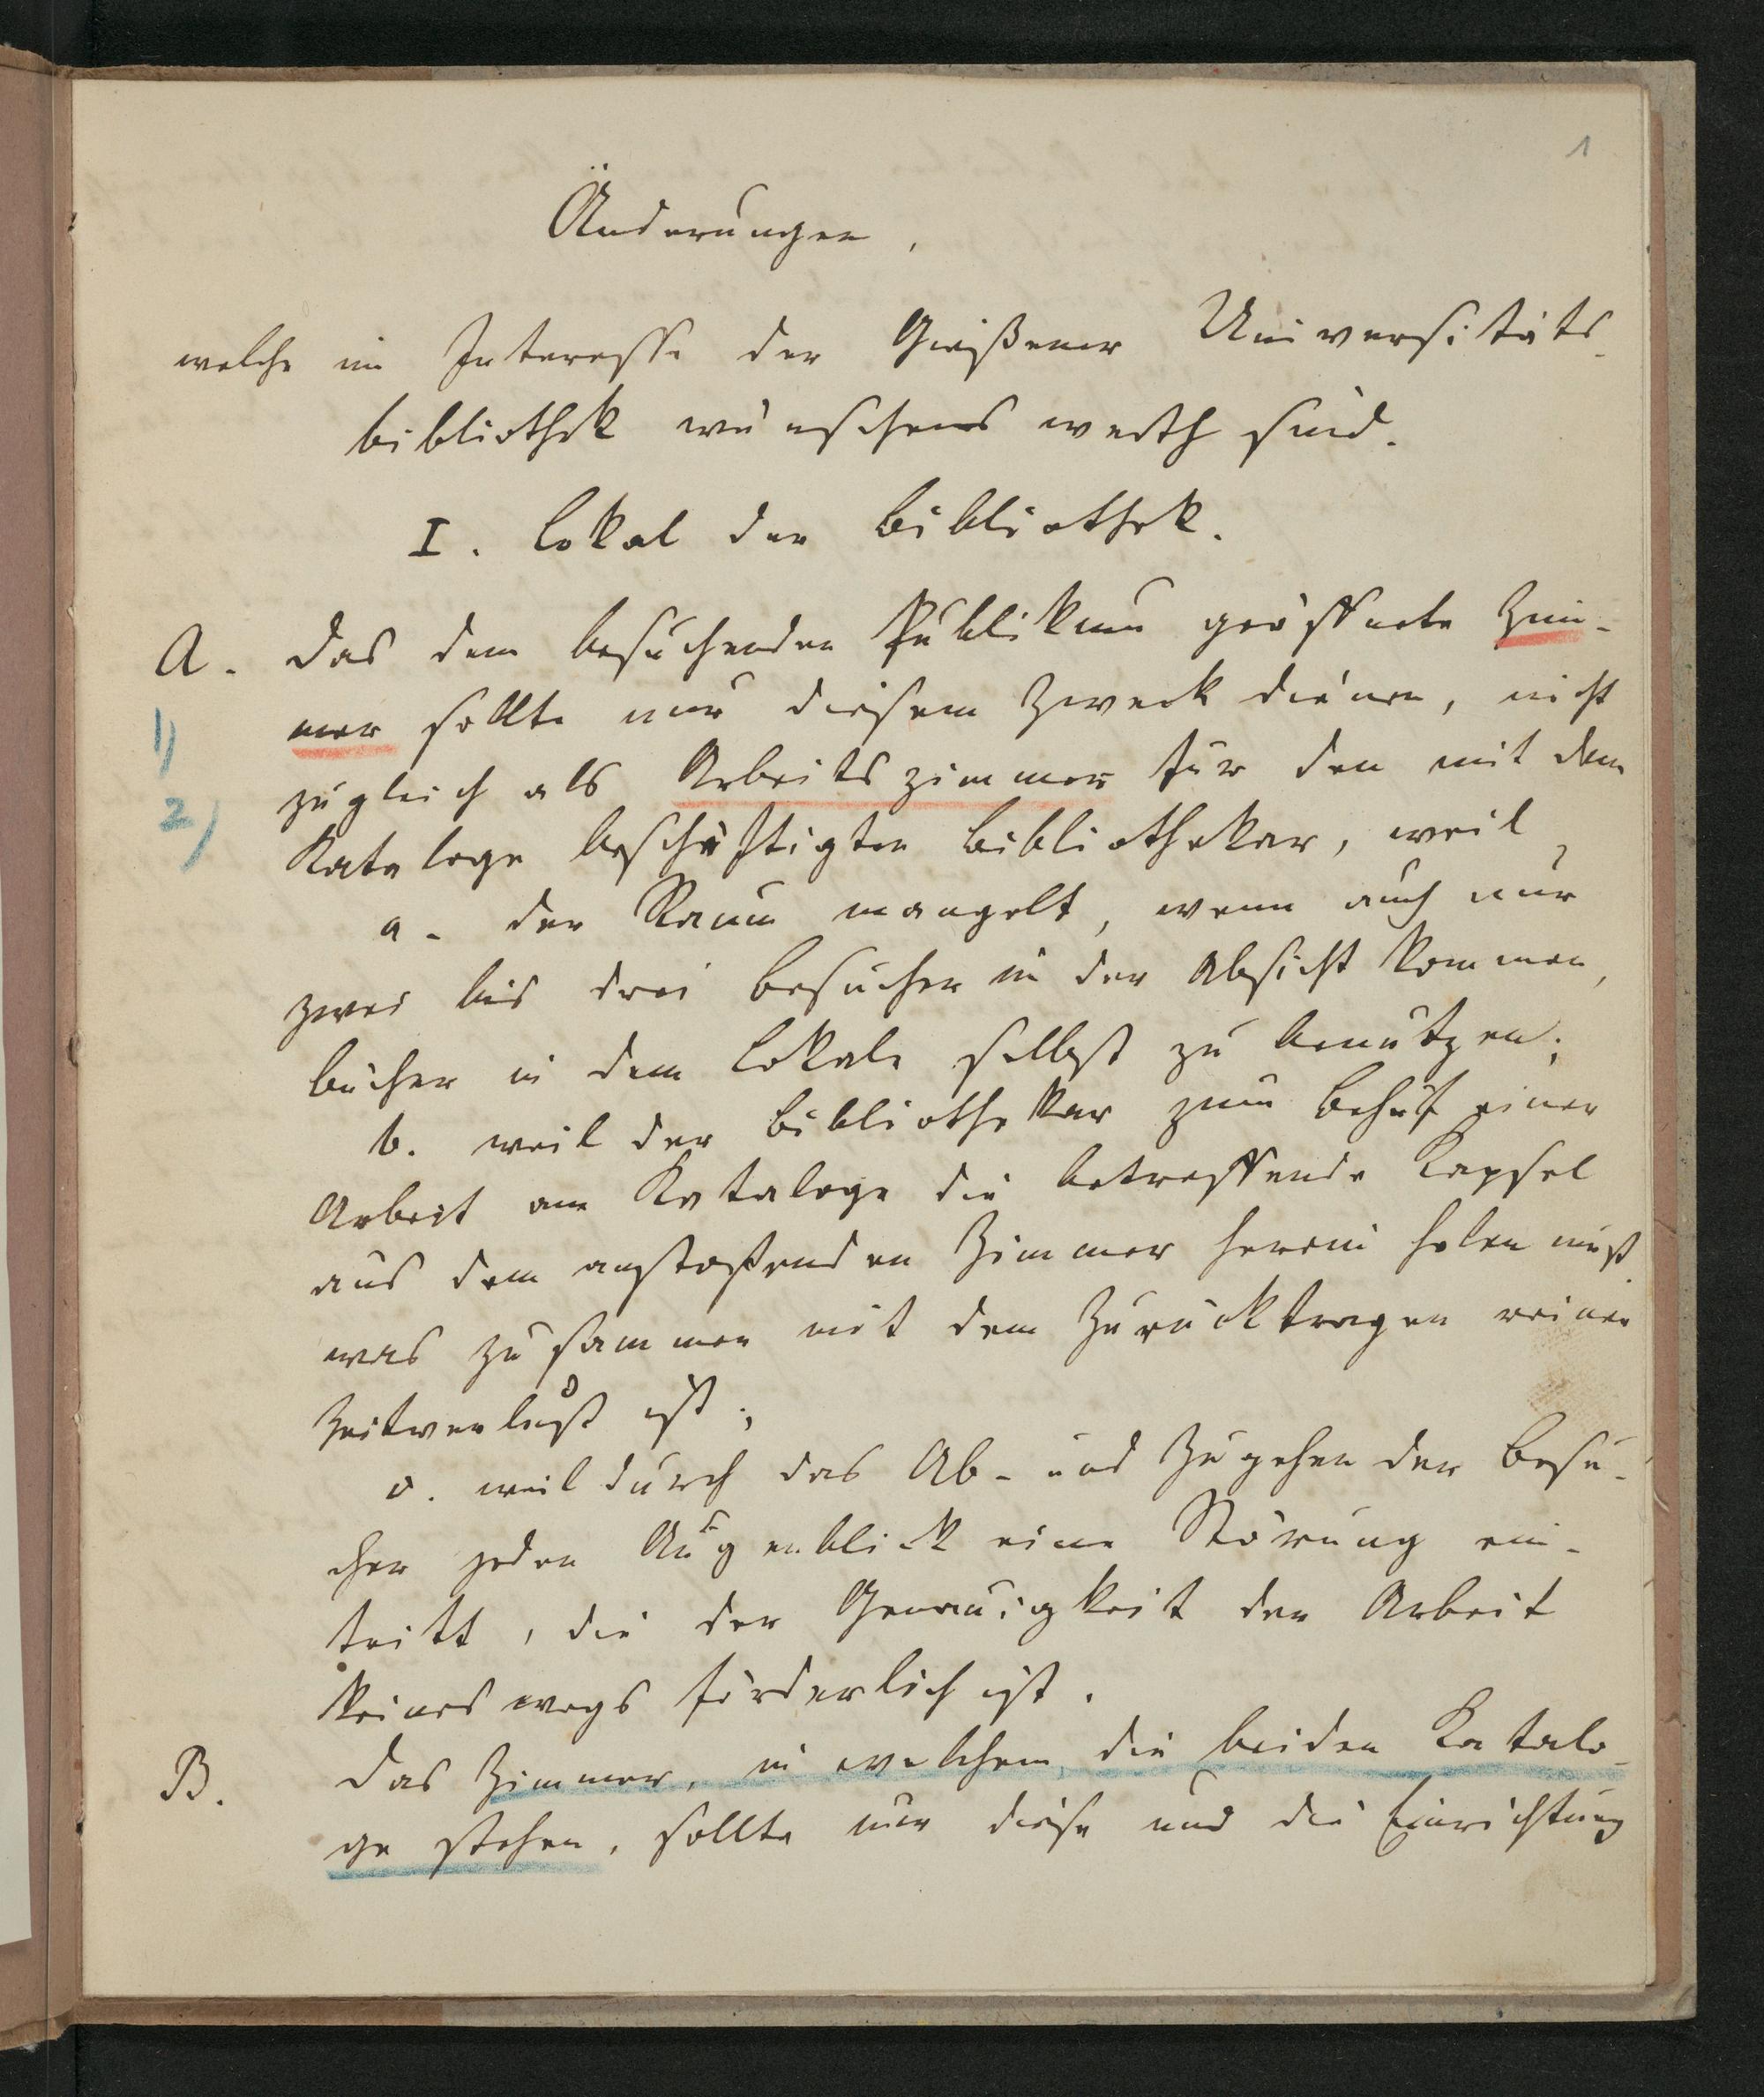 1
Änderungen,
welche im Interesse der Gießener Universitäts-
bibliothek wünschens werth sind.
I. Lokal der Bibliothek.
A. Das dem besuchenden Publikum geöffnete Zim-
1) mer sollte nur diesem Zweck dienen, nicht
2) zugleich als Arbeitszimmer für den mit dem
Kataloge beschäftigten Bibliothekar, weil
a. der Raum mangelt, wenn auch nur
zwei bis drei Besucher in der Absicht kommen,
Bücher in dem Lokale selbst zu benutzen;
b. weil der Bibliothekar zum Behuf einer
Arbeit am Kataloge die betreffende Kapsel
aus dem anstoßenden Zimmer herein holen muß
was zusammen mit dem Zurücktragen reiner
Zeitverlust ist;
c. weil durch das Ab- und Zugehen der Besu-
cher jeden Augenblick eine Störung ein-
tritt, die der Genauigkeit der Arbeit
keineswegs förderlich ist.
B. Das Zimmer, in welchem die beiden Katalo-
ge stehen, sollte nur diese und die Einrichtung